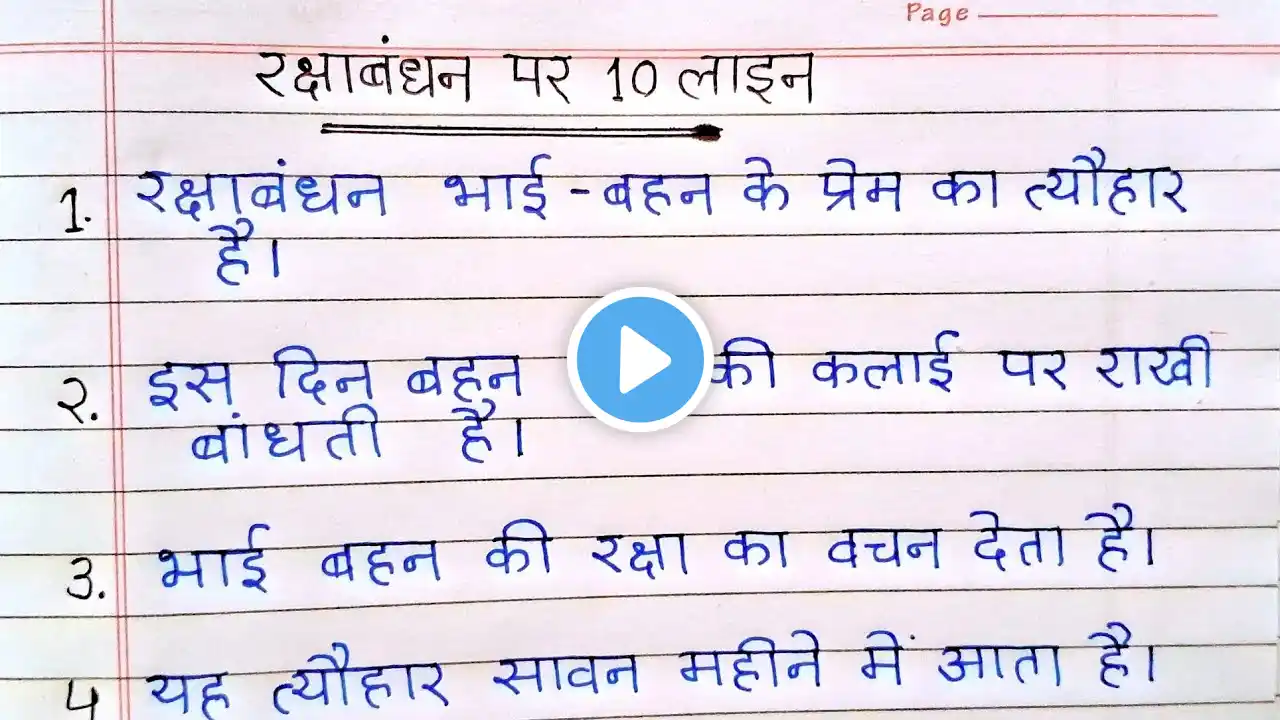 Page
रक्षाबंधन पर 10 लाइन
1. रक्षाबंधन भाई-बहन के प्रेम का त्यौहार
है।
२. इस दिन बहन की कलाई पर राखी
बांधती है।
3. भाई बहन की रक्षा का वचन देता है।
4 यह त्यौहार सावन महीने में आता है।